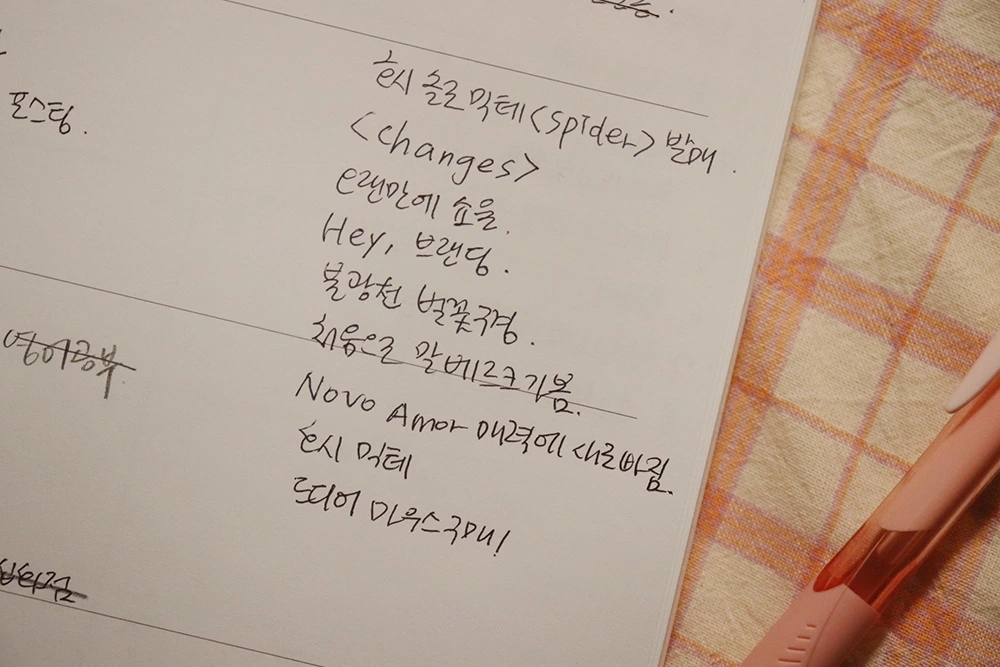 포스팅.
호시 솔로 믹테 <spider> 발매.
<changes>
오랜만에 쇼율.
Hey, 브랜딩.
불광천 벚꽃구경.
처음으로 말베르크 가봄.
영어공부
Novo Amor 매력에 새로 빠짐.
호시 믹테
드디어 마우스 구매!